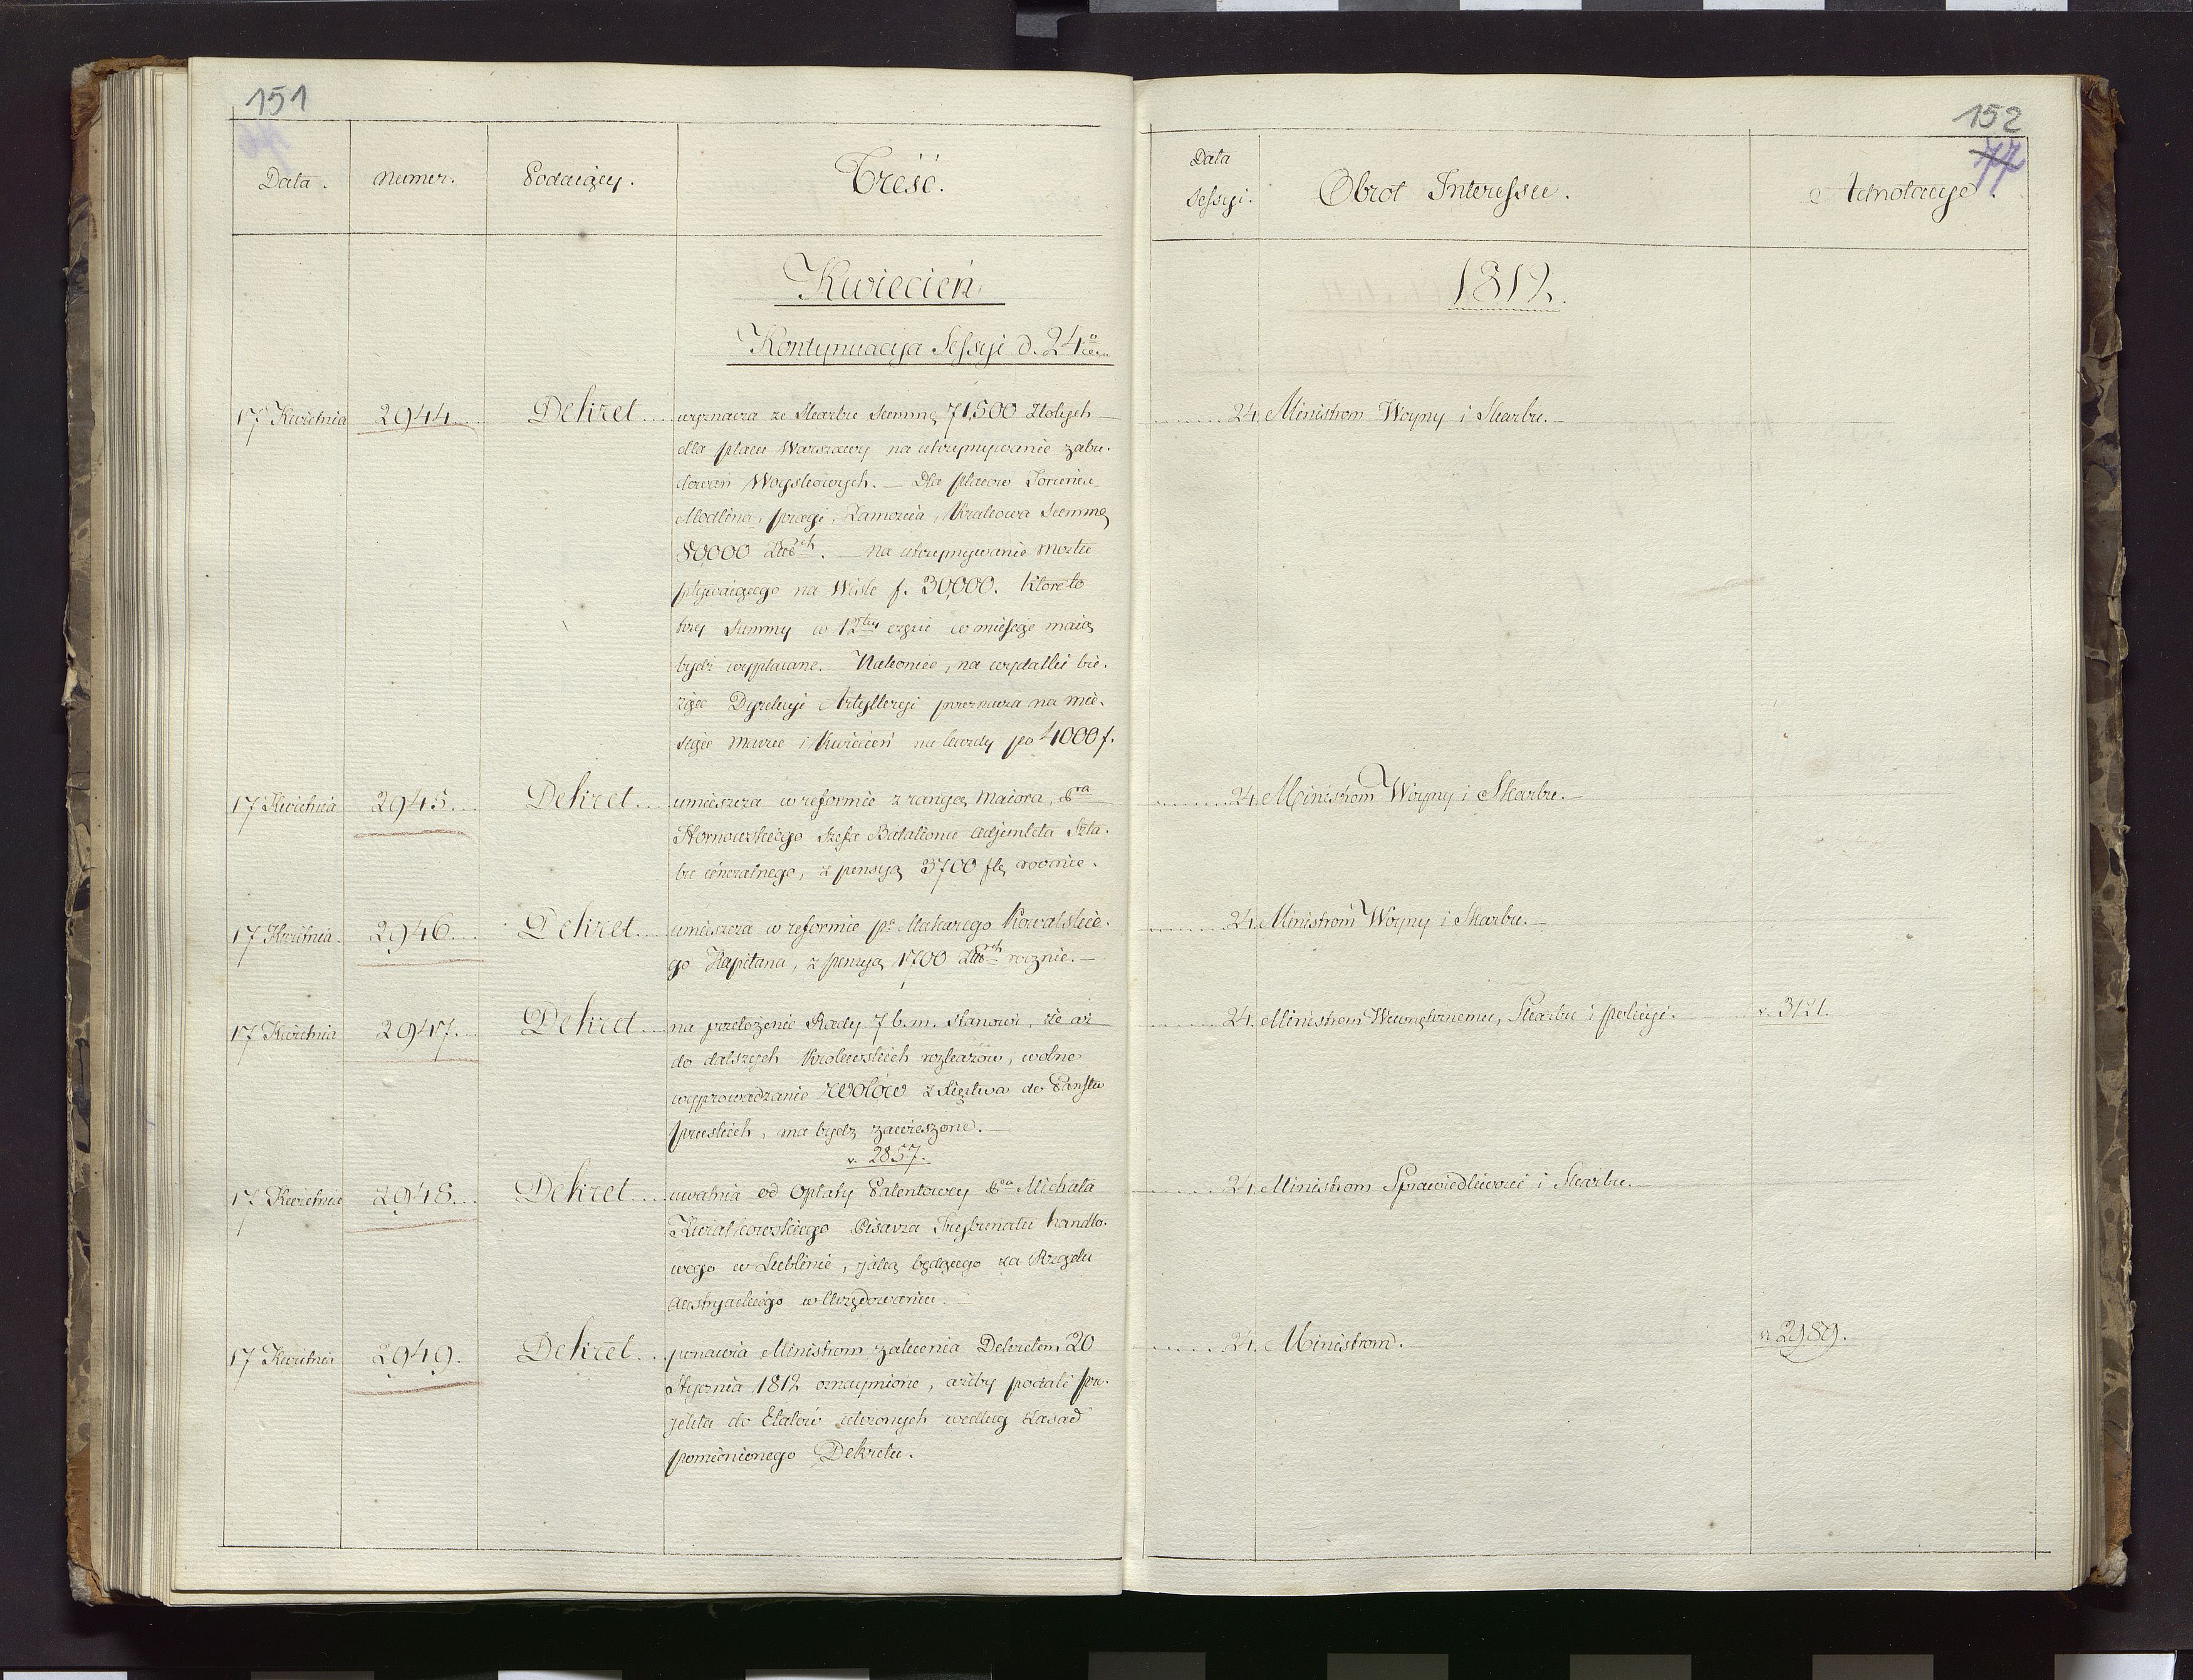 151
Data.
Numer.
Podaiący.
Treść.
Kwiecień
Kontynuacya Sessyi d. 24
17 Kwietnia 2944. Dekret wyznacza ze Skarbu Summę 71,500 Złotych
dla placu Warszawy na utrzymywanie zabu-
dowań Woyskowych. — Dla placow Torunia
Modlina, pragi, Zamoscia, Krakowa Summę
80,000 — na utrzymywanie mostu
pływaiącego na Wisle f. 30,000. Ktore to
trzy Summy w 12tey części co miesiąc maią
bydź wypłacane. Nakoniec, na wydatki bie-
zące Dyrekcyi Artylleryi przeznacza na mie-
siące Marzec i Kwiecień na kazdy po 4000 f.
17 Kwietnia 2945. Dekret umieszcza w reformie z rangą Maiora,
Hornowskiego Szefa Batalionu adjunkta Szta-
bu Generalnego, z pensyą 3700 rocznie.
17 Kwietnia 2946. Dekret umieszcza w reformie po Makarego Kowalskie-
go Kapitana, z pensyą 1700 rocznie. —
17 Kwietnia 2947. Dekret na przełożenie Rady 7 b.m. stanowi, że aż
do dalszych Krolewskich rozkazów, wolne
wyprowadzanie wołów z Xięstwa do Państw
pruskich, ma bydź zawieszone. —
v. 2857.
17 Kwietnia 2948. Dekret uwalnia od Opłaty Patentowey Michała
Kwiatkowskiego Pisarza Trybunału handlo-
wego w Lublinie, jako będącego za Rządu
Austryackiego w Urzędowaniu. —
17 Kwietnia 2949. Dekret ponawia Ministrom zalecenia Dekretem 20
Stycznia 1812 oznaymione, ażeby podali pro-
jekta do Etatów ułożonych według zasad
pomienionego Dekretu.
152
77
Data
Sessyi.
Obrot Interessu.
Adnotacye.
1812.
24. Ministrom Woyny i Skarbu. —
24. Ministrom Woyny i Skarbu. —
24. Ministrom Woyny i Skarbu. —
24. Ministrom Wewnętrznemu, Skarbu i policyi. v. 3121.
24. Ministrom Sprawiedliwości i Skarbu. —
24. Ministrom. — v. 2989.